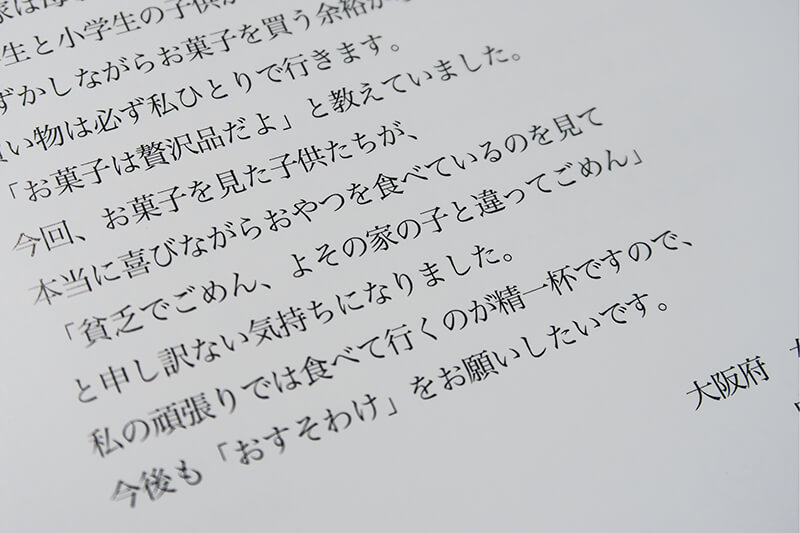 学生と小学生の子供が
ずかしながらお菓子を買う余裕が
買い物は必ず私ひとりで行きます。
「お菓子は贅沢品だよ」と教えていました。
今回、お菓子を見た子供たちが、
本当に喜びながらおやつを食べているのを見て
「貧乏でごめん、よその家の子と違ってごめん」
と申し訳ない気持ちになりました。
私の頑張りでは食べて行くのが精一杯ですので、
今後も「おすそわけ」をお願いしたいです。
大阪府